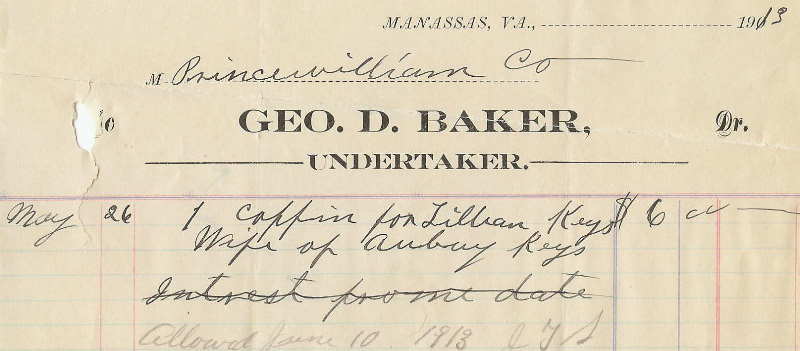 MANASSAS, VA., 1913
M Princewilliam Co
To GEO. D. BAKER, Dr.
UNDERTAKER.
May 26 1 Coffin for Lillian Keys $ 6 00
Wife of Aubuy Keys
Intrest from date
Allowed June 10 1913